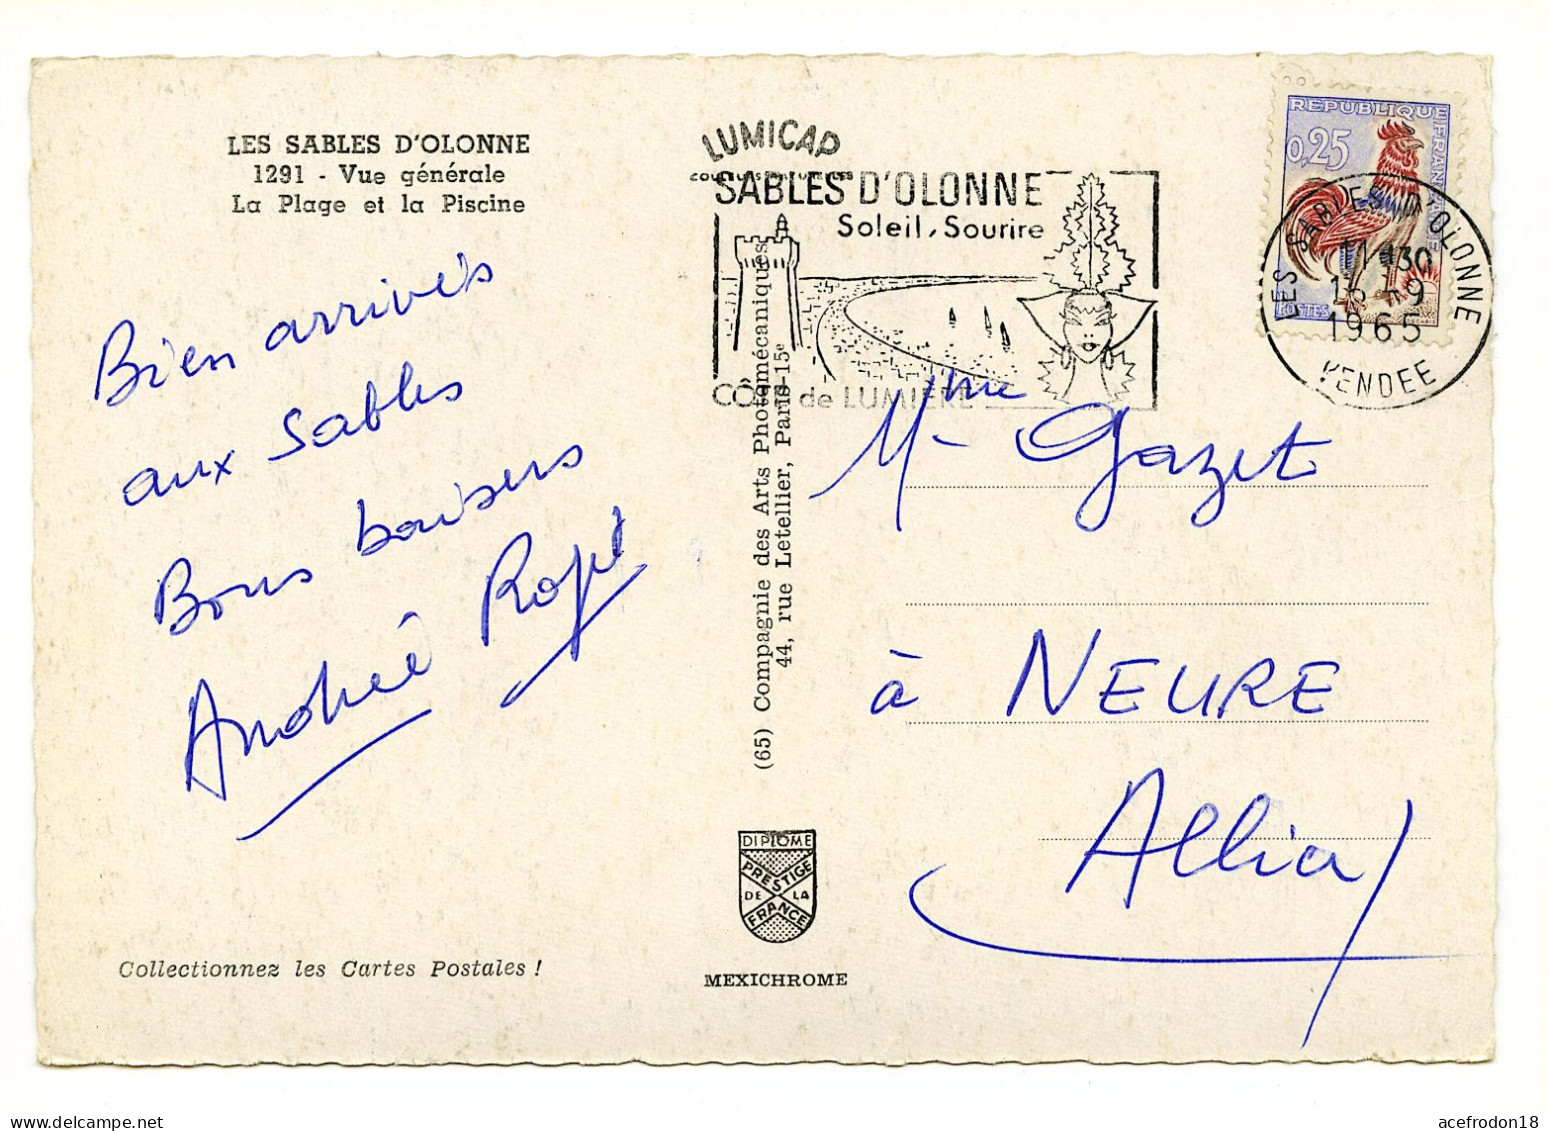 LES SABLES D'OLONNE
1291 - Vue générale
La Plage et la Piscine
Bien arrivés
aux Sables
Bons baisers
Andrée
Collectionnez les Cartes Postales !
LUMICAP
SABLES D'OLONNE
Soleil, Sourire
CÔTE de LUMIÈRE
(65) Compagnie des Arts Photomécaniques
44, rue Letellier, Paris-15e
DIPLOME
PRESTIGE
DE LA
FRANCE
MEXICHROME
REPUBLIQUE FRANÇAISE
0,25
POSTES
LES SABLES D'OLONNE
11 H30
-9
1965
VENDEE
Mme Gazet
à NEURE
Allier
delcampe.net
acefrodon18